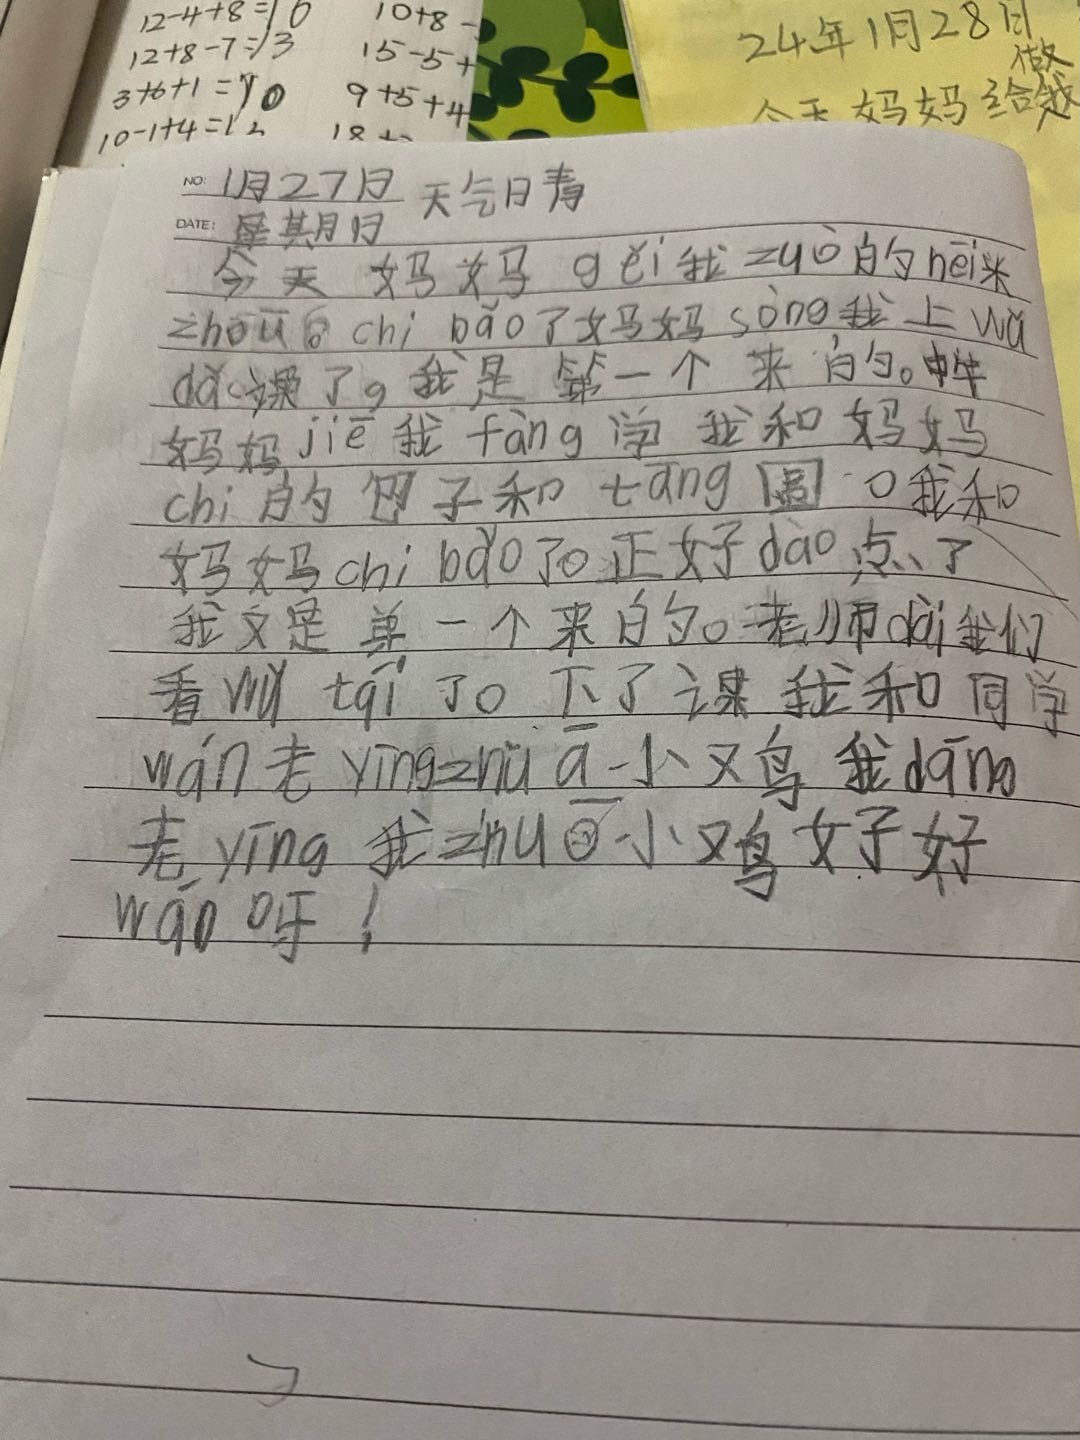 12-4+8=16
10+8-
12+8-7=13
15-5+
3+6+1=10
9+5+4
10-1+4=12
18+
24年1月28日
做
今天妈妈给我
NO: 1月27日 天气日青
DATE: 星期日
今天 妈妈 gěi我zuò的hēi米
zhōu。chi bǎo了妈妈sòng我上wǔ
dǎo课了,我是 第一个 来 的。中午
妈妈jiē我fàng学 我和妈妈
chi的包子和tāng圆。我和
妈妈chi bǎo了。正好dào点、了
我又是 第一个来的。老师dài我们
看wǔ tái了。下了课 我和同学
wán老yīngzhuā小又鸟 我dāng
老yīng 我zhuō小又鸟好好
wán呀!